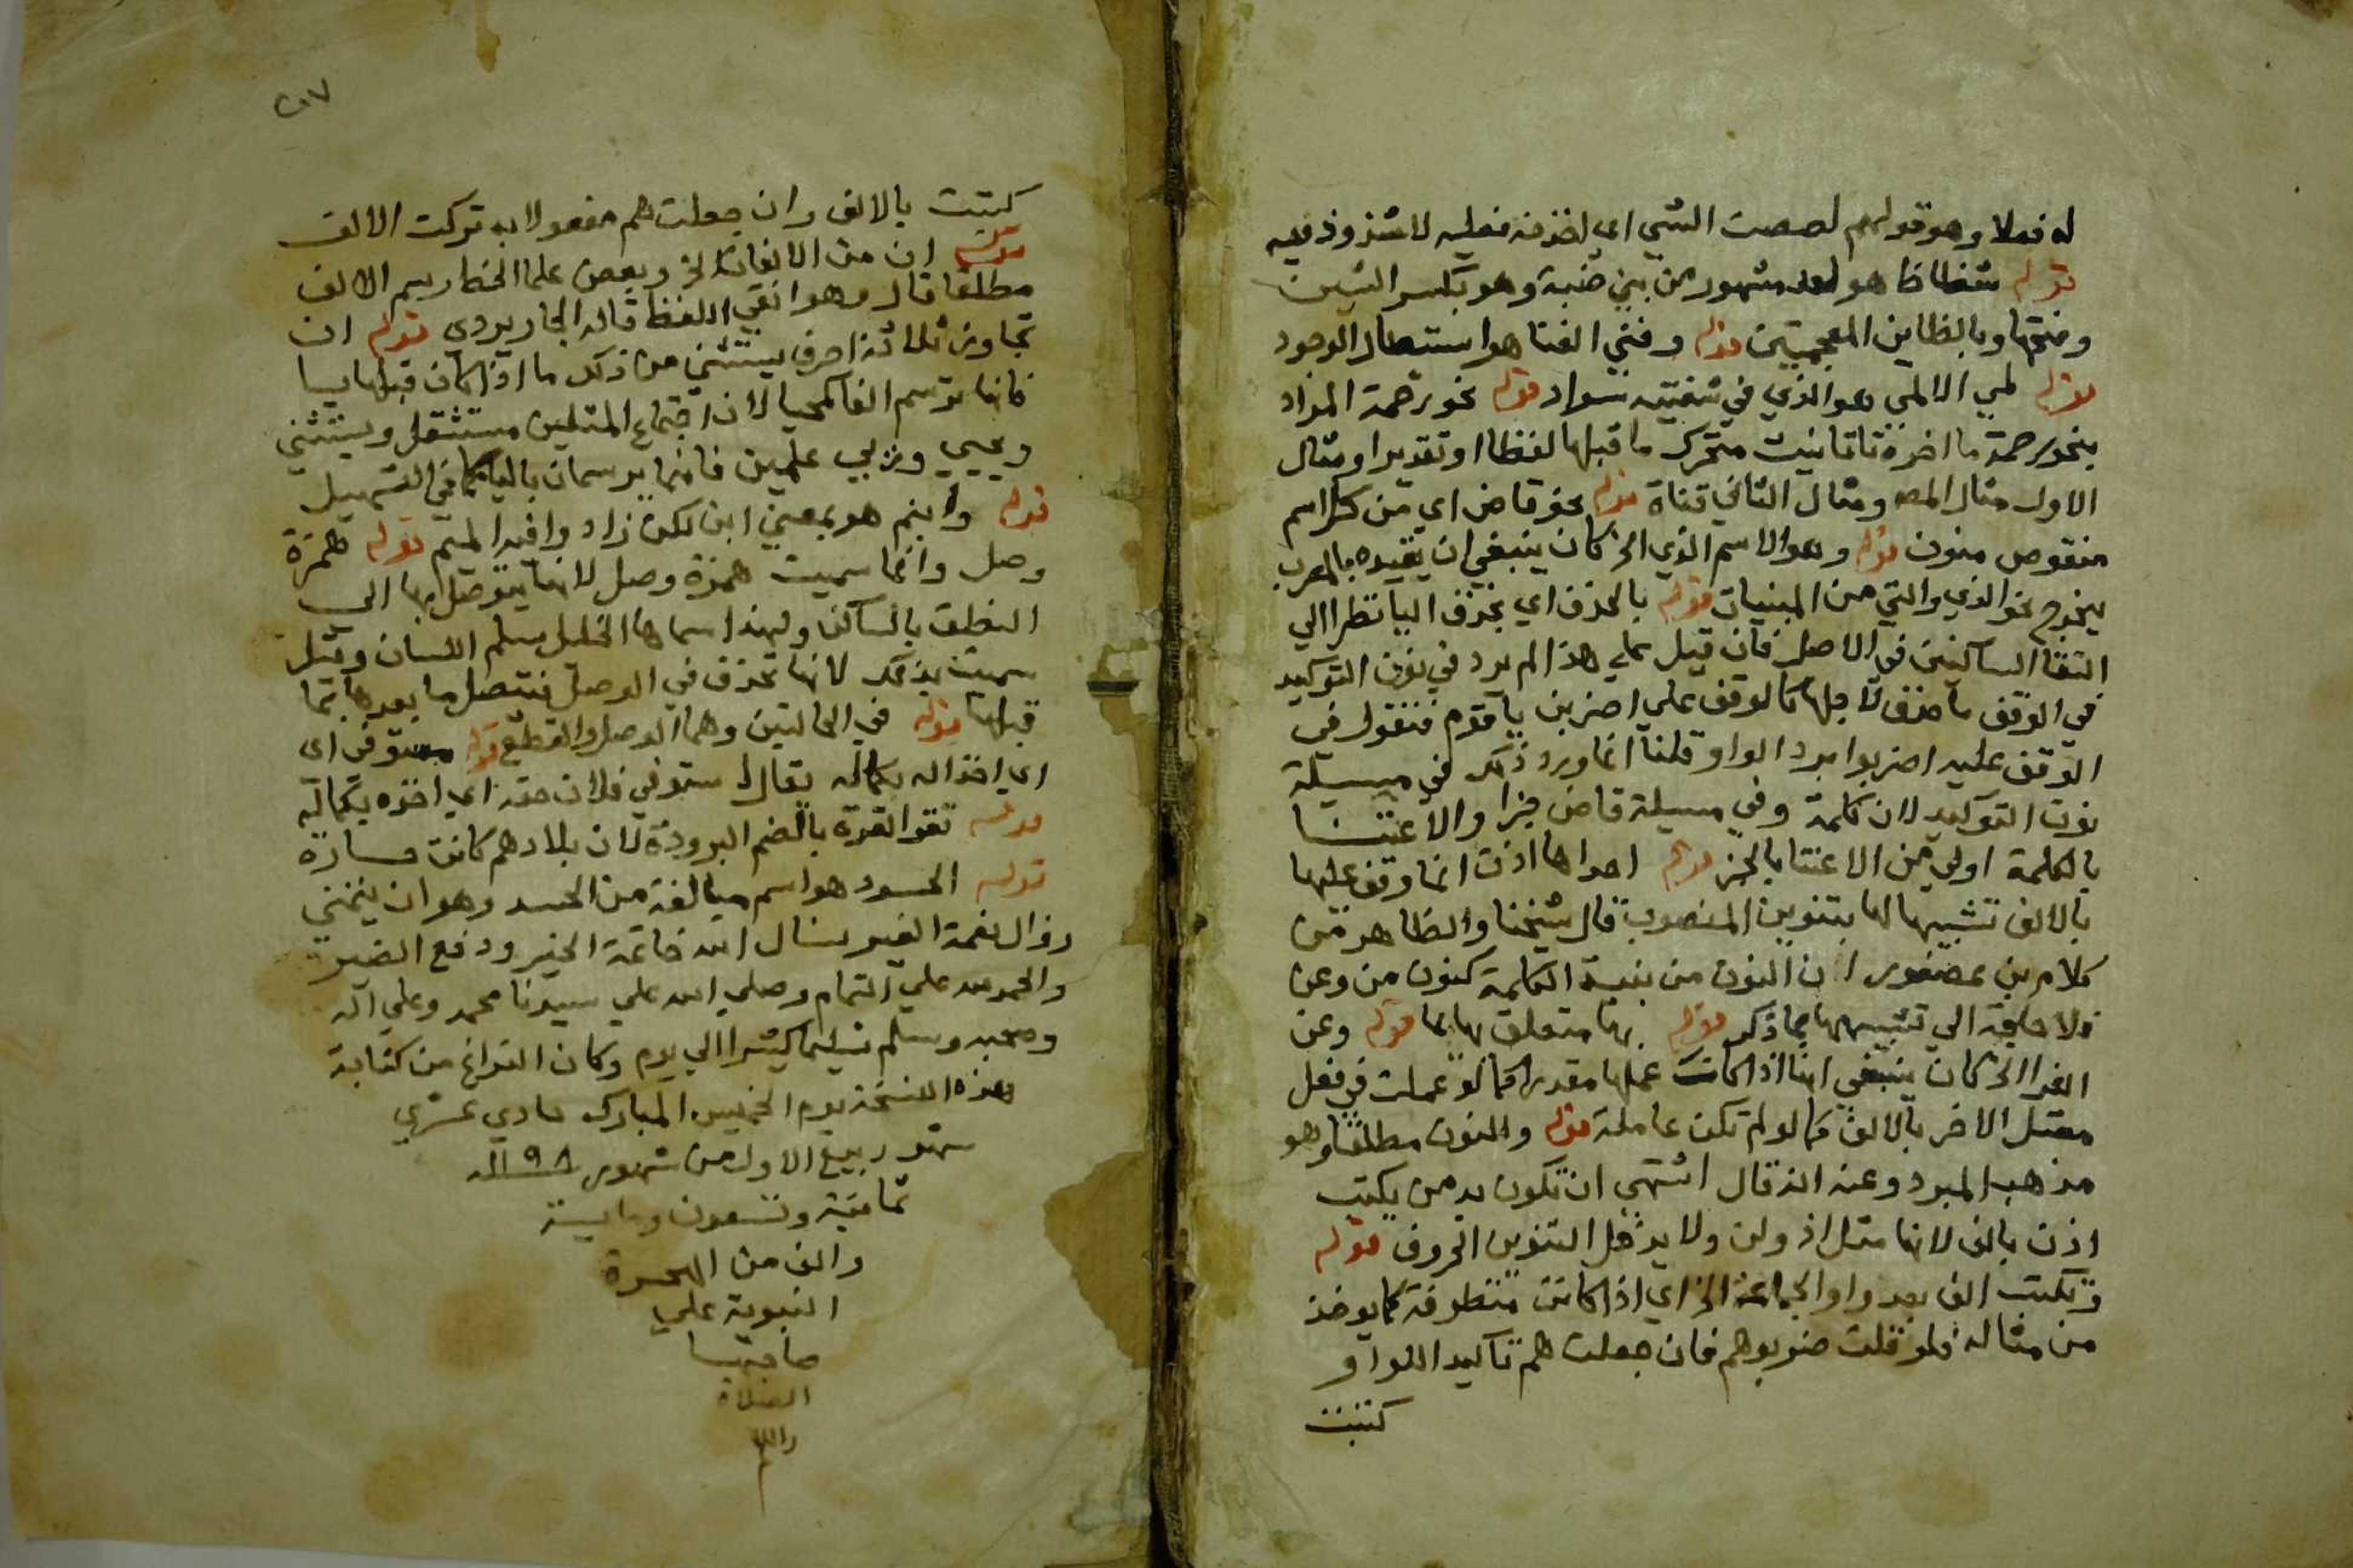 له فعلا وهو قولهم لصصت الشي اي اخذته فعليه لا شذوذ فيه
قوله شظاظا هو لص مشهور من بني ضبة وهو بكسر الشين
وفتحها وبالظاين المعجمتين قوله وفني الفنا هو استبطال الوجود
قوله لمي الالمي هو الذي في شفتيه سواد قوله نحو رحمة المراد
بنحو رحمة ما اخره تا تانيث متحرك ما قبلها لفظا او تقديرا ومثال
الاول مثال المص ومثال الثاني قناة قوله نحو قاض اي من كل اسم
منقوص منون قوله وهو الاسم الذي الخ كان ينبغي ان يقيده بالمعرب
ليخرج نحو الذي والتي من المبنيات قوله بالحذف اي بحذف اليا نظرا الي
التقا الساكنين في الاصل فان قيل علي هذا لم يرد في نون التوكيد
في الوقف ما حذف لاجلها كالوقف علي اضربن يا قوم فنقول في
الوقف عليه اضربوا برد الواو قلنا انما ورد ذلك في مسيلة
نون التوكيد لان كلمة وفي مسيلة قاض جزا والاعتنا
بالكلمة اولي من الاعتنا بالجز قوله احداها اذن انما وقف عليها
بالالف تشبيها لها بتنوين المنصوب قال شيخنا والظاهر من
كلام بن عصفور ان النون من بنية الكلمة كنون من وعن
فلا حاجة الي تشبيهها بما ذكر قوله بها متعلق بها قوله وعن
الفرا الخ كان ينبغي انها اذا كانت عملها مقدرا كما لو عملت في فعل
معتل الاخر بالالف كما لو لم تكن عاملة قوله والنون مطلقا وهو
مذهب المبرد وعنه انه قال اشتهي ان تكون يد من يكتب
اذن بالف لانها مثل اذ ولن ولا يدخل التنوين الحروف قوله
وتكتب الف بعد واو الجماعة الخ اي اذا كانت متطرفة كما يوخذ
من مثاله فلو قلت ضربوهم فان جعلت هم تاكيدا للواو
كتبت
٢٠٧
كتبت بالالف وان جعلت هم مفعولا به تركت الالف
قوله ان من الالفات الخ وبعض علما الخط يرسم الالف
مطلقا قال وهو انفي للغلط قاله الجاربردي قوله ان
تجاوزن ثلاثة احرف يستثني من ذلك ما اذا كان قبلها يا
فانها ترسم الفا كمحيا لان اجتماع المثلين مستثقل ويستثني
ويحيي وربي علمين فانهما يرسمان باليا كما في التسهيل
قوله وابنم هو بمعني ابن لكن زاد وا فيه الميم قوله همزة
وصل وانما سميت همزة وصل لانها يتوصل بها الي
النطق بالساكن ولهذا سماها الخليل سلم اللسان وقيل
سميت بذلك لانها تحذف في الوصل فيتصل ما بعدها بما
قبلها قوله في الحالتين وهما الوصل والقطع قوله مستوفي اي
اي اخذا له بكماله يقال استوفي فلان حقه اي اخذه بكماله
قوله تقوا القرة بالضم البرودة لان بلادهم كانت حارة
قوله الحسود هو اسم مبالغة من الحسد وهو ان يتمني
زوال نعمة الغير نسال الله خاتمة الخير ودفع الضير
والحمد لله علي التمام وصلي الله علي سيدنا محمد وعلي اله
وصحبه وسلم تسليما كثيرا الي يوم وكان الفراغ من كتابة
هذه النسخة يوم الخميس المبارك حادي عشري
شهر ربيع الاول من شهور ١١٩٨ سنة
ثمانية وتسعون وماية
والف من الهجرة
النبوية علي
صاحبها
الصلاة
والسلام